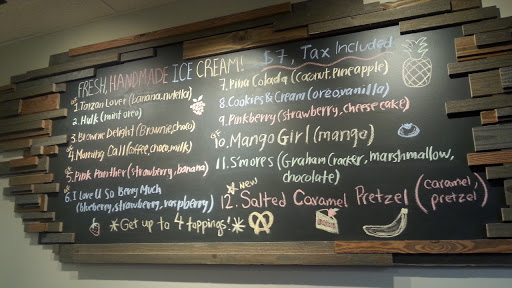 FRESH, HANDMADE ICE CREAM!
$7, Tax Included
1. Tarzan Lover (banana, nutella)
2. Hulk (mint oreo)
3. Brownie Delight (Brownie, choco)
4. Morning Call (coffee, choco, milk)
5. Pink Panther (strawberry, banana)
6. I Love U So Berry Much
(blueberry, strawberry, raspberry)
*Get up to 4 toppings!*
7. Pina Colada (coconut, pineapple)
8. Cookies & Cream (oreo, vanilla)
9. Pinkberry (strawberry, cheesecake)
10. Mango Girl (mango)
11. S'mores (Graham Cracker, marshmallow,
chocolate)
NEW
12. Salted Caramel Pretzel (caramel,
pretzel)